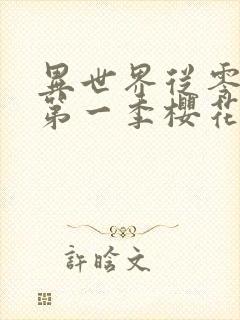 異世界從零
第一季櫻花
許晗文